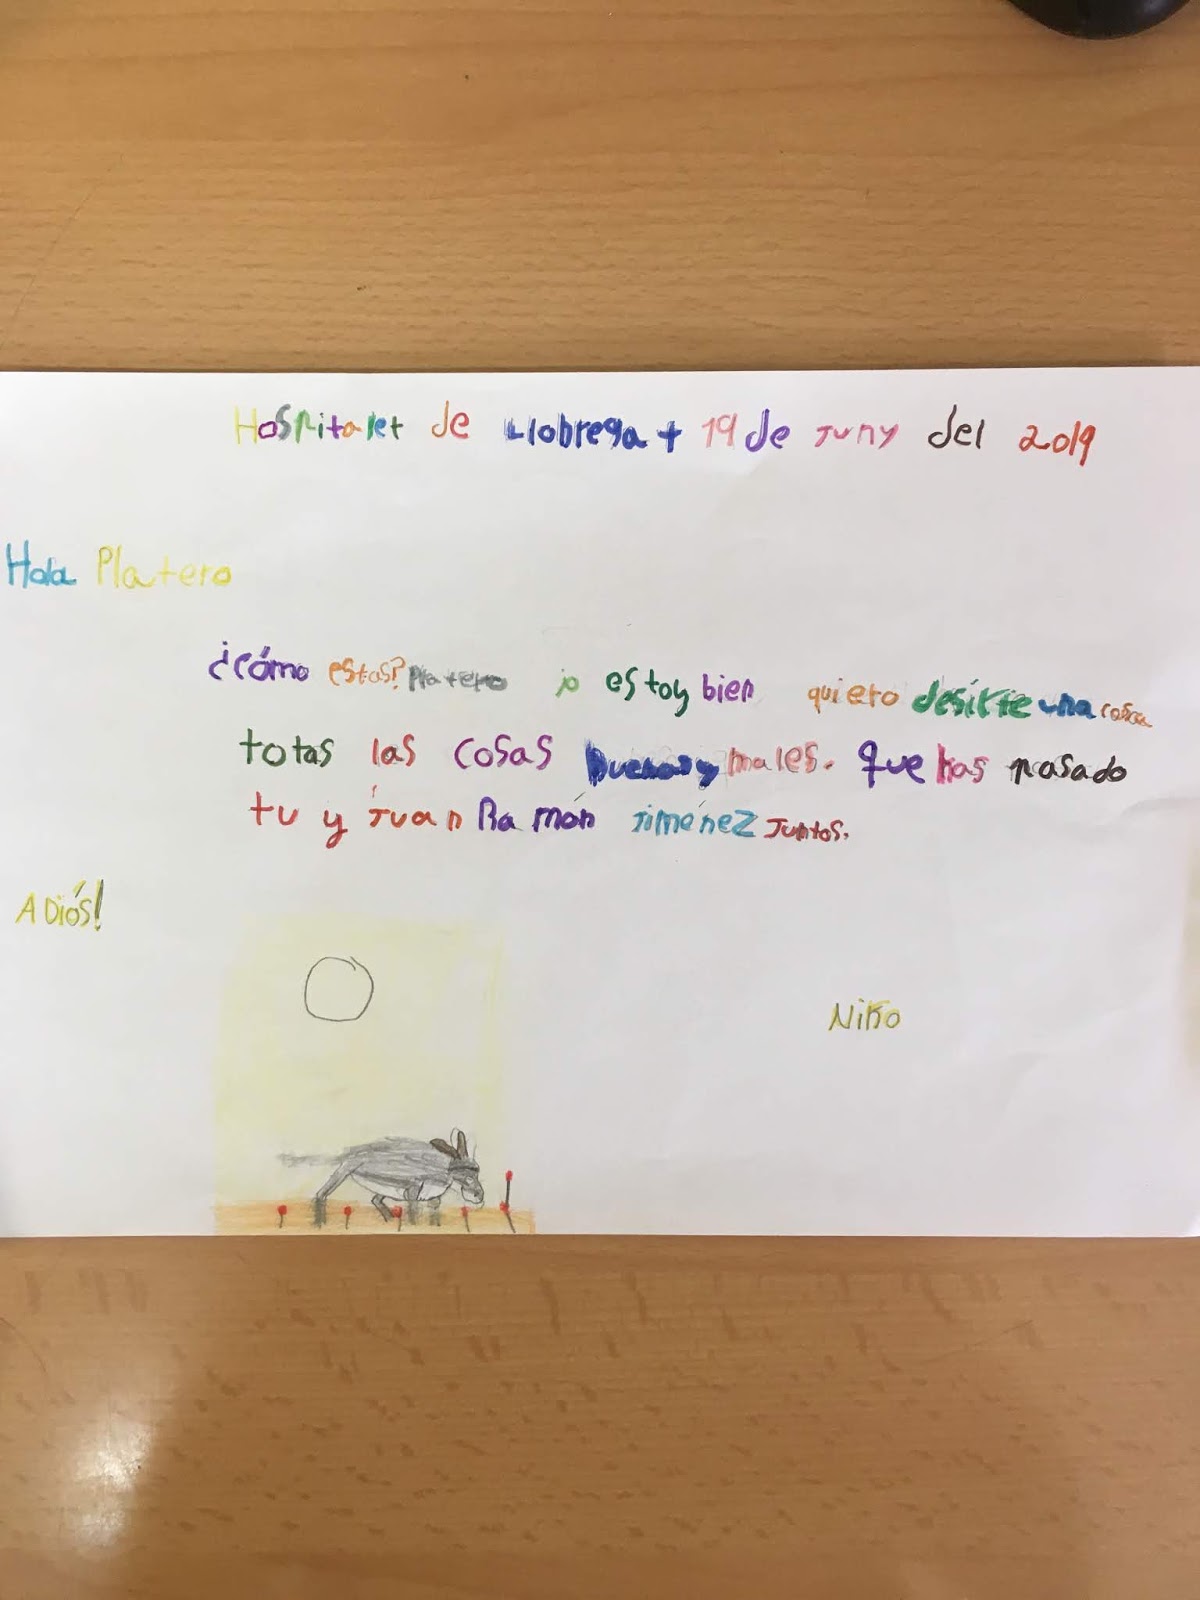 Hospitalet de Llobregat 19 de Juny del 2019
Hola Platero
¿cómo estas? Platero jo estoy bien quiero desirte una cosa
totas las cosas buenas y males. que has pasado
tu y Juan Ramón Jiménez Juntos.
ADiós!
Niko